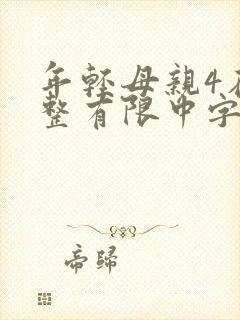 年輕母親4在
整有限中字
帝歸